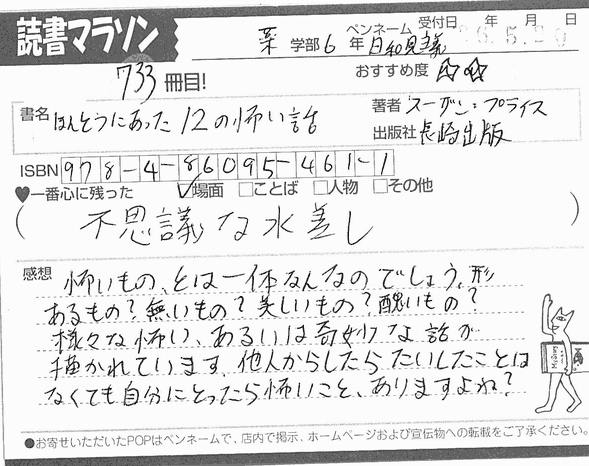 読書マラソン
薬 学部 6 年 ペンネーム 日和見主義 受付日 年 月 日
26.5.20
733 冊目! おすすめ度 ☆☆
書名 ほんとうにあった12の怖い話 著者 スーザン・プライス
出版社 長崎出版
ISBN 978-4-86095-461-1
♥一番心に残った ☑場面 □ことば □人物 □その他
(不思議な水差し)
感想 怖いもの、とは一体なんなのでしょう。形
あるもの?無いもの?美しいもの?醜いもの?
様々な怖い、あるいは奇妙な話が
描かれています。他人からしたらたいしたことは
なくても自分にとったら怖いこと、ありますよね?
●お寄せいただいたPOPはペンネームで、店内で掲示、ホームページおよび宣伝物への転載をご了承ください。